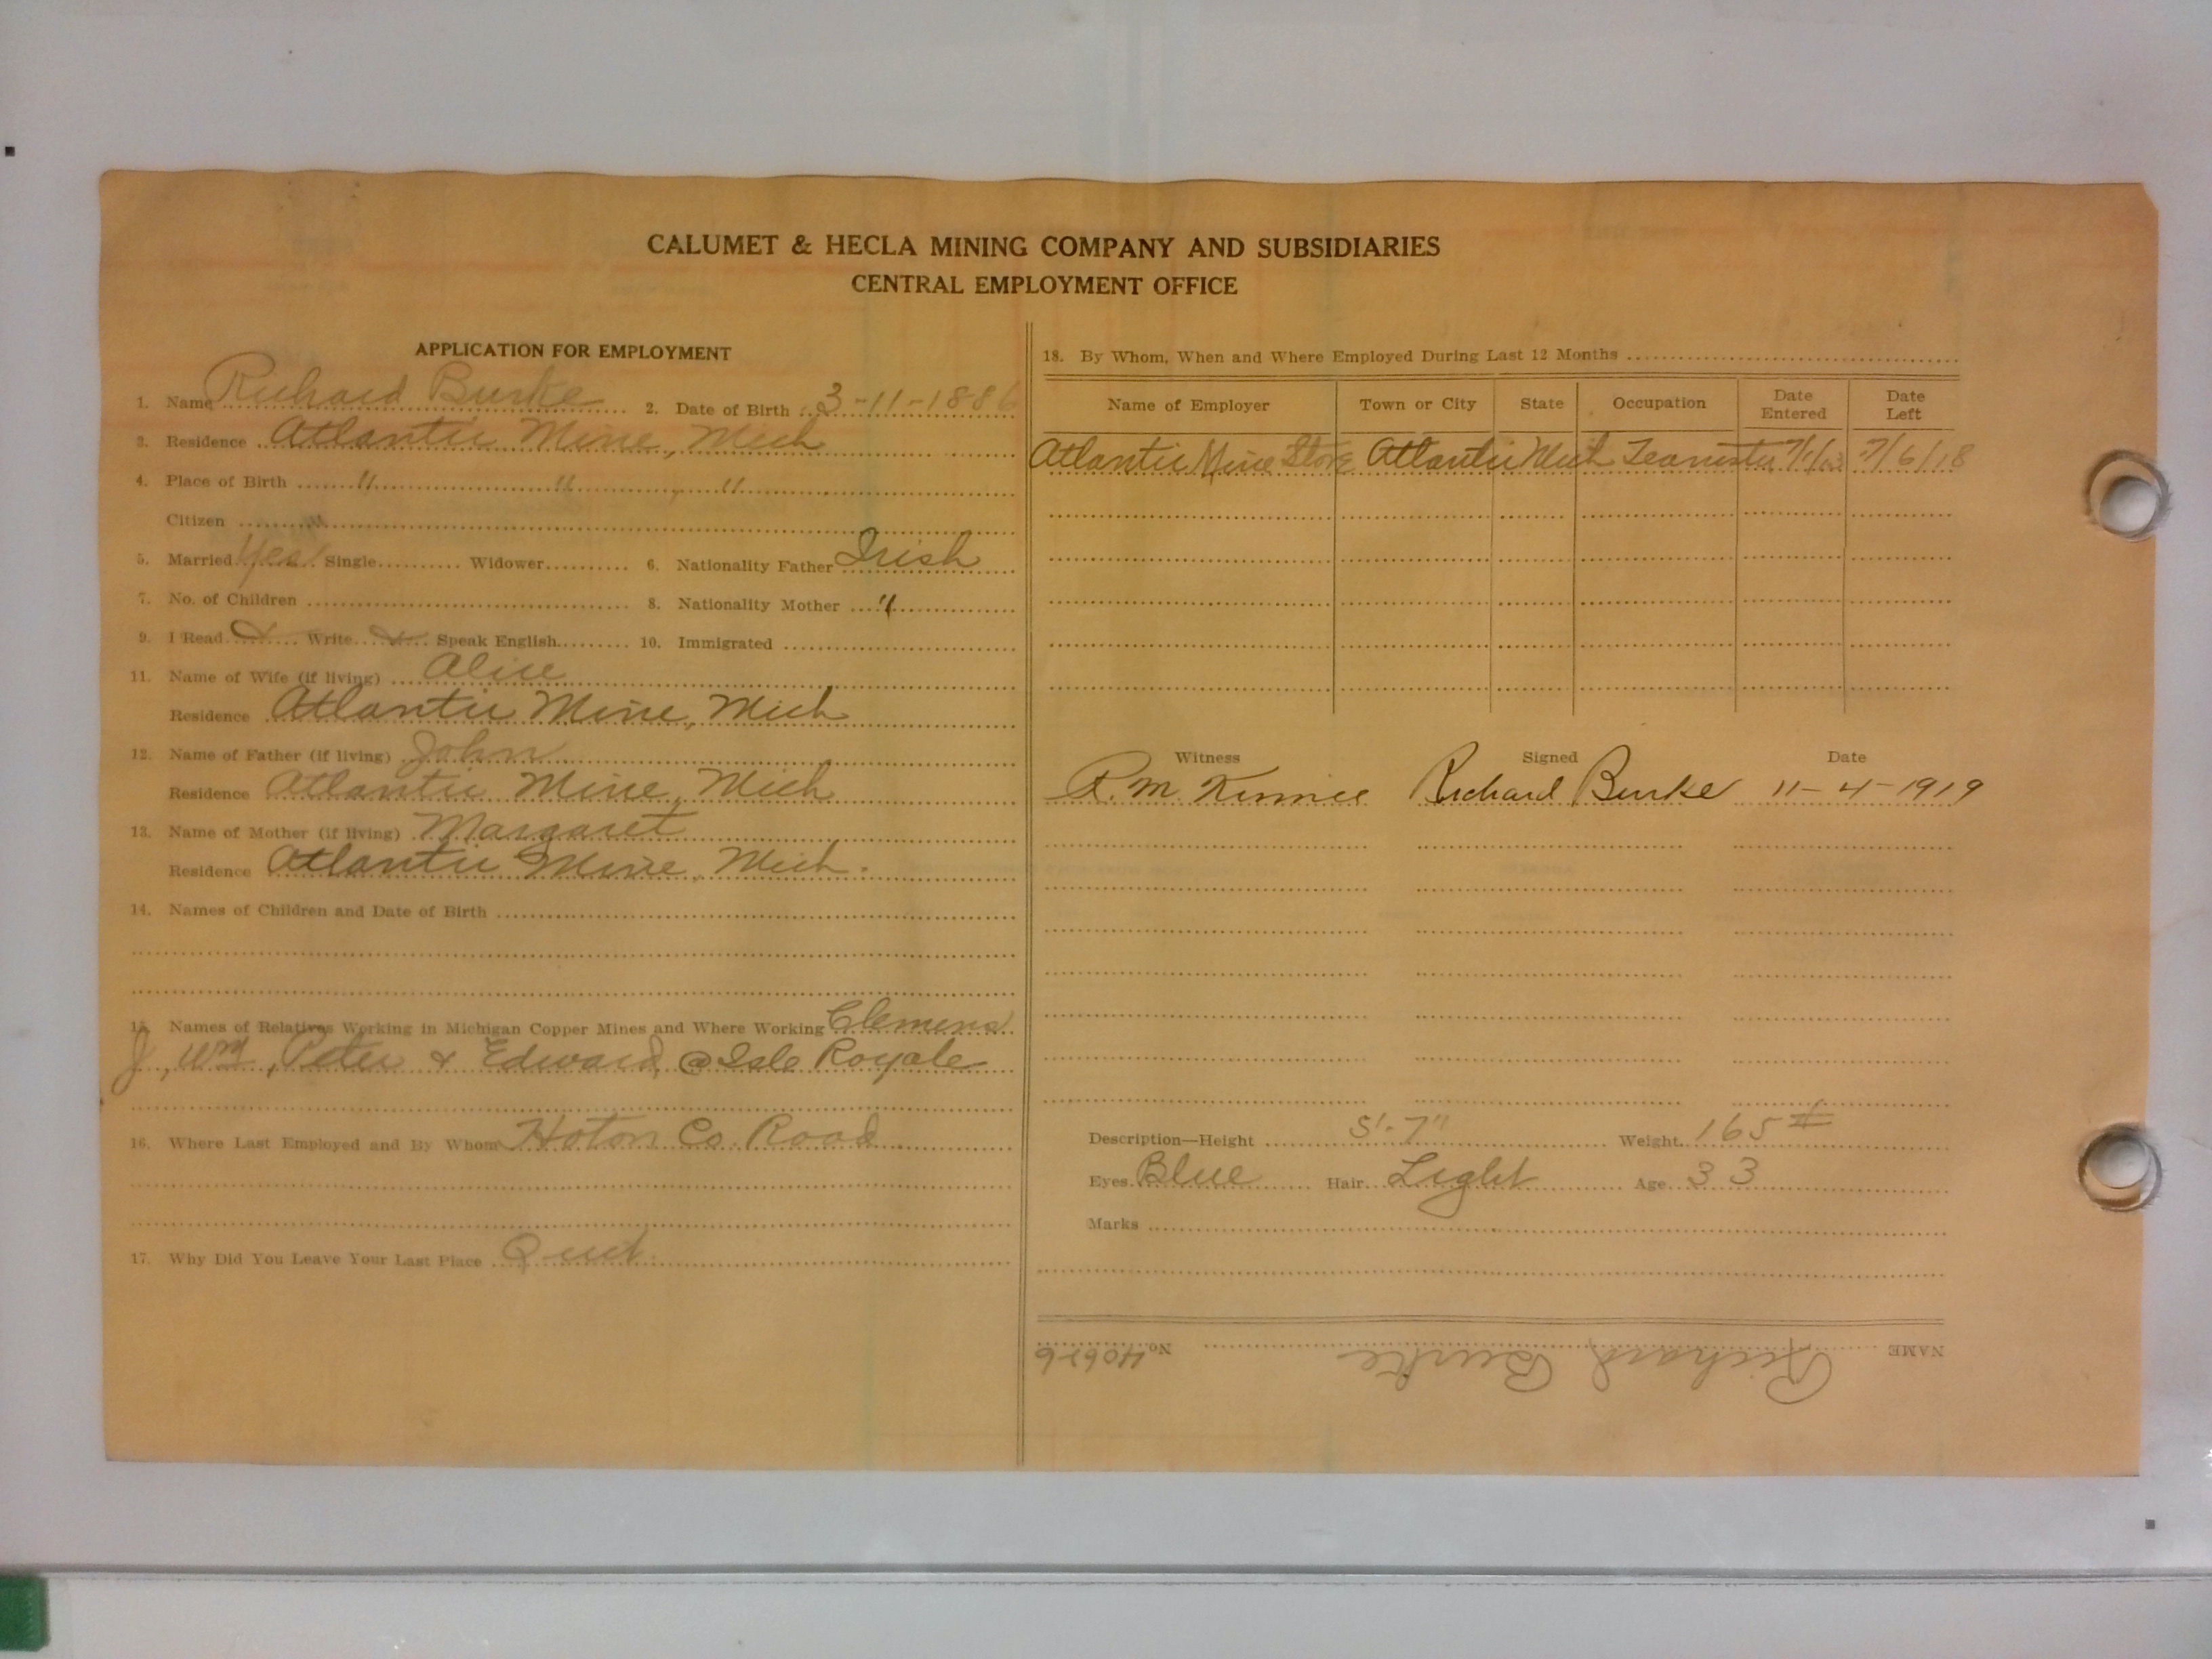 CALUMET & HECLA MINING COMPANY AND SUBSIDIARIES
CENTRAL EMPLOYMENT OFFICE
APPLICATION FOR EMPLOYMENT
1. Name Richard Burke 2. Date of Birth 3-11-1886
3. Residence Atlantic Mine, Mich
4. Place of Birth " " "
Citizen
5. Married Yes Single Widower 6. Nationality Father Irish
7. No. of Children 8. Nationality Mother "
9. I Read x Write x Speak English 10. Immigrated
11. Name of Wife (if living) Alice
Residence Atlantic Mine, Mich
12. Name of Father (if living) John
Residence Atlantic Mine, Mich
13. Name of Mother (if living) Margaret
Residence Atlantic Mine, Mich.
14. Names of Children and Date of Birth
15. Names of Relatives Working in Michigan Copper Mines and Where Working Clemens
J., Wm, Peter & Edward @ Isle Royale
16. Where Last Employed and By Whom Hoton Co. Road
17. Why Did You Leave Your Last Place Quit.
18. By Whom, When and Where Employed During Last 12 Months
Name of Employer Town or City State Occupation Date Entered Date Left
Atlantic Mine Store Atlantic Mich Teamster 7/6/18
Witness Signed Date
R. M. Kinnie Richard Burke 11-4-1919
Description—Height 5'-7" Weight 165#
Eyes Blue Hair Light Age 33
Marks
NAME Richard Burke No.